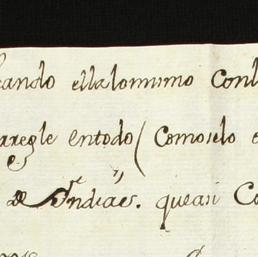 ando ella lomismo Conl
rregle entodo ( Comoselo e
de Yndias. queasi Co